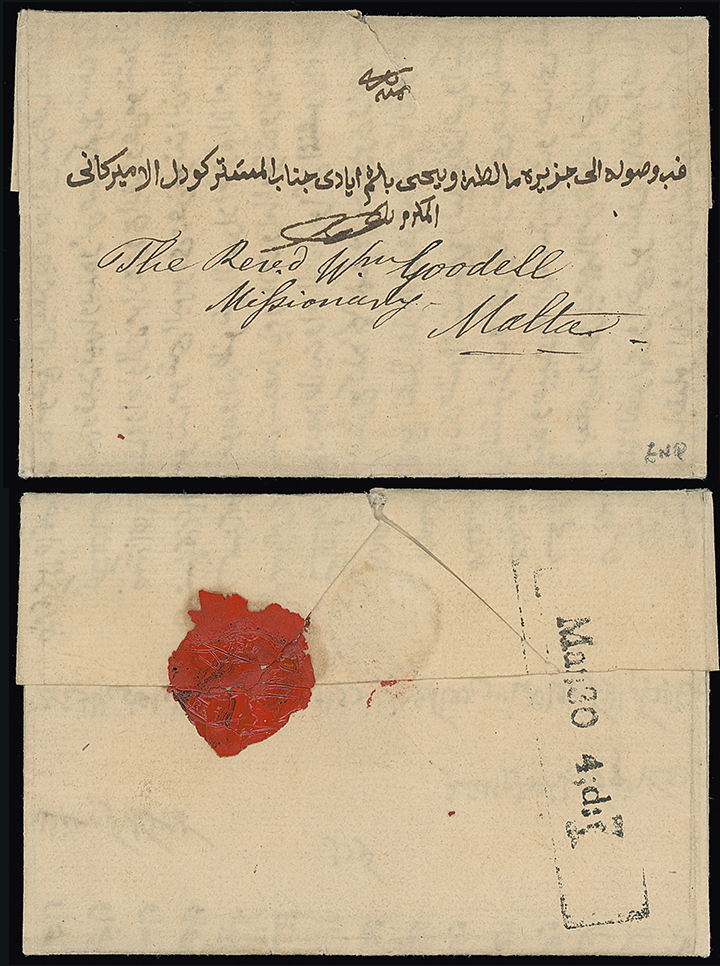 منه
فب وصوله الى جزيره مالطه ويحيى بلثم ايادى جناب المستر كودل الاميركانى
المكرم
The Reve.d Wm. Goodell
Missionary
Malta
ENQ
Mar:30 4;d:7